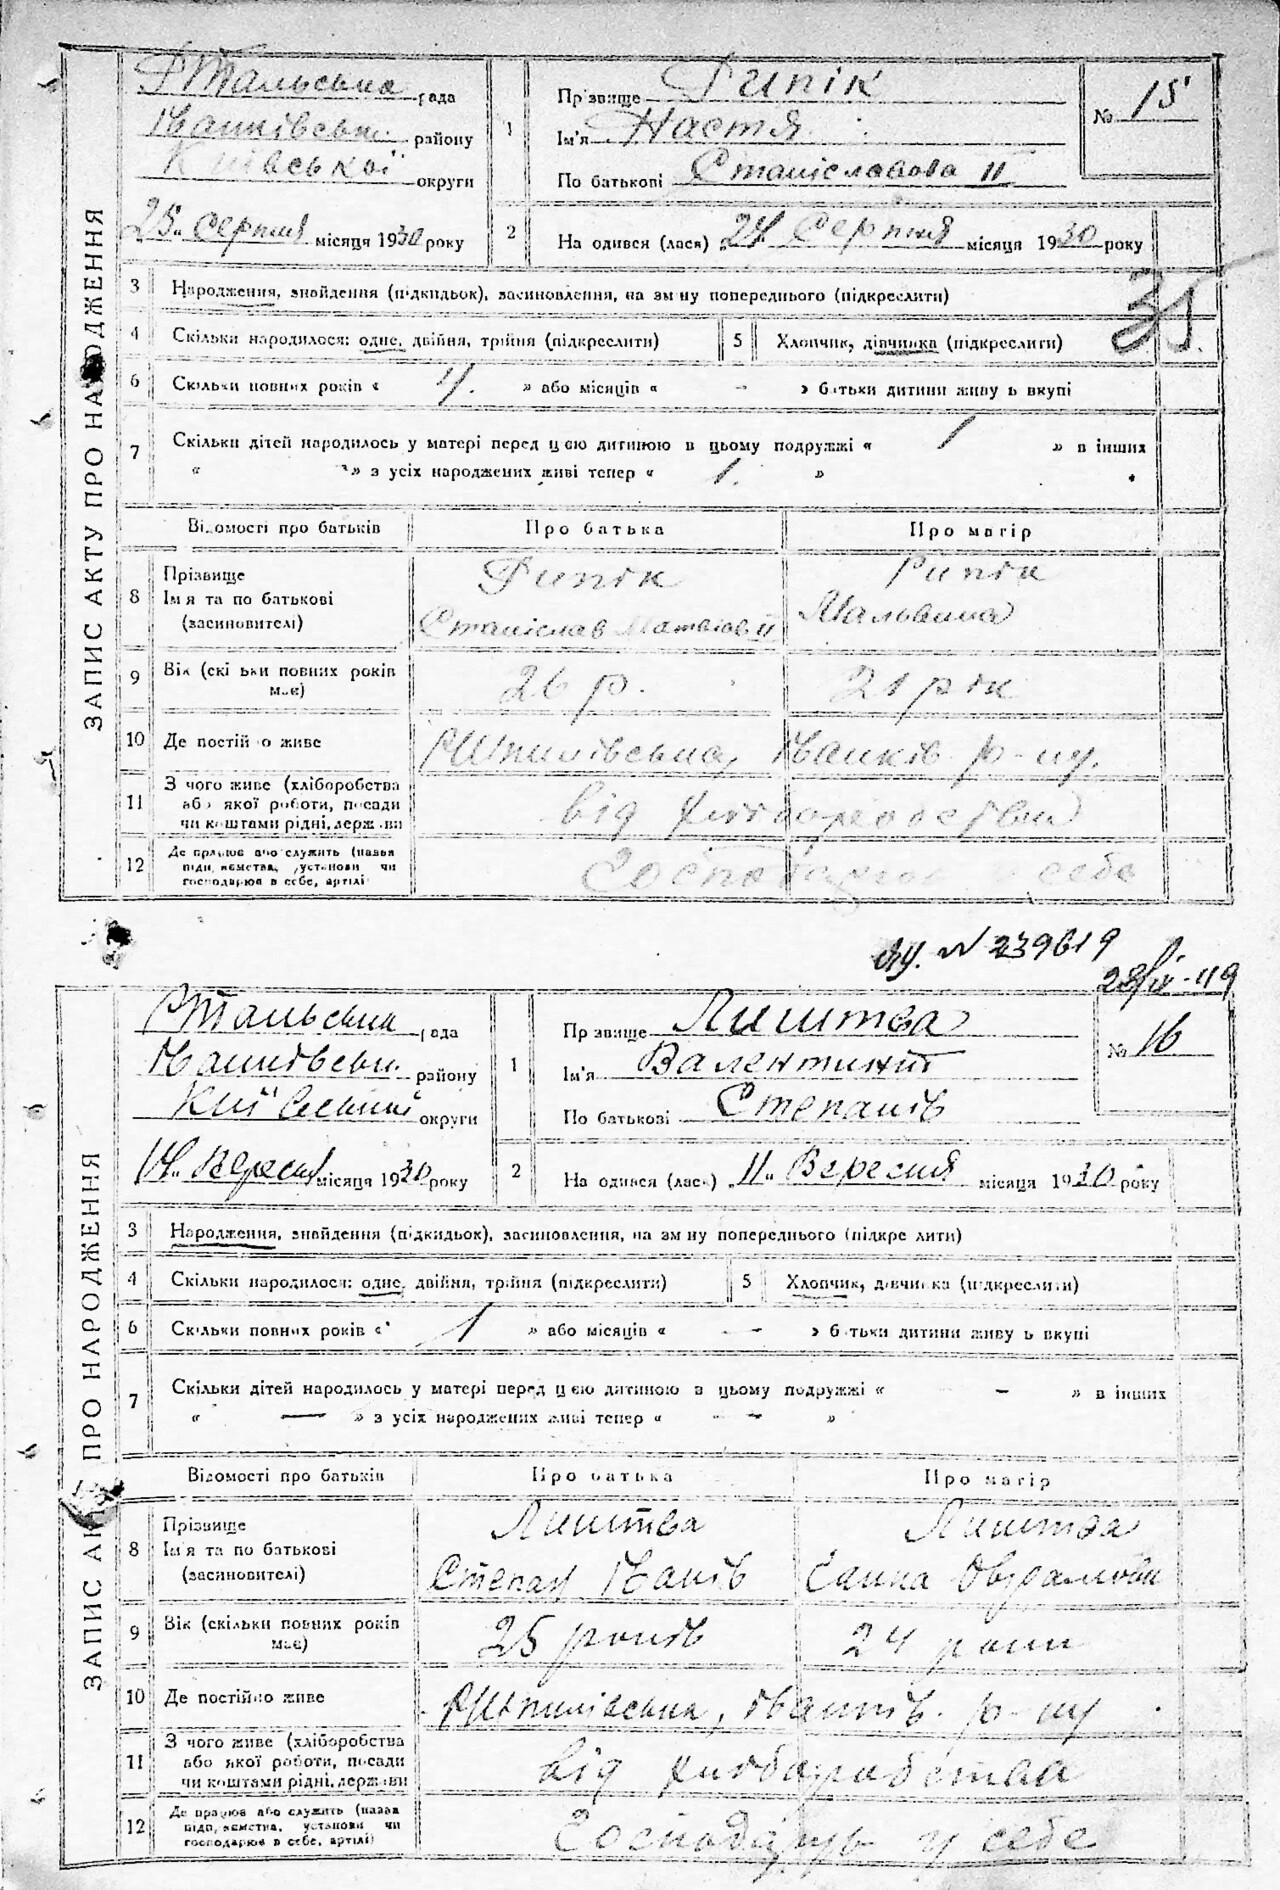 ЗАПИС АКТУ ПРО НАРОДЖЕННЯ
Тальська рада
району
Київської округи
25 серпня місяця 1930 року
1
Прізвище Рипік
Ім'я Настя
По батькові Станіславова
№ 15
2
На одився (лася) 24 Серпня місяця 1930 року
35
3 Народження, знайдення (підкидьок), засиновлення, на зм ну попереднього (підкреслити)
4 Скільки народилося: одне, двійня, трійня (підкреслити)
5 Хлопчик, дівчинка (підкреслити)
6 Скільки повних років « » або місяців « - » б тьки дитини живу ь вкупі
7 Скільки дітей народилось у матері перед цією дитиною в цьому подружжі « 1 » в інших
« » з усіх народжених живі тепер « 1. »
Відомості про батьків Про батька Про матір
8 Прізвище
Ім'я та по батькові
(засиновителі)
Рипік
Станіслав
Рипік
Мальвина
9 Вік (скі ьки повних років
має)
26 р.
21 рік
10 Де постій о живе
Шпилівська, р-ну.
11 З чого живе (хліборобства
або якої роботи, посади
чи коштами рідні, держ ви
від
12 Де працює або служить (назва
підп, ємства, установи чи
господарює в себе, артілі
себе
№ 239619
ЗАПИС АКТУ ПРО НАРОДЖЕННЯ
Тальська рада
району
округи
14 Вересня місяця 1930 року
1
Пр звище Лиштва
Ім'я Валентин
По батькові Степанів
№ 16
2
На одився (лася) 11 Вересня місяця 1930 року
3 Народження, знайдення (підкидьок), засиновлення, на зм ну попереднього (підкре лити)
4 Скільки народилося: одне, двійня, трійня (підкреслити)
5 Хлопчик, дівчинка (підкреслити)
6 Скільки повних років « 1 » або місяців « — » б тьки дитини живу ь вкупі
7 Скільки дітей народилось у матері перед цією дитиною в цьому подружжі « - » в інших
« — » з усіх народжених живі тепер « - »
Відомості про батьків Про батька Про матір
8 Прізвище
Ім'я та по батькові
(засиновителі)
Лиштва
Степан
Лиштва
Ганна
9 Вік (скільки повних років
має)
25 років
24 роки
10 Де постійно живе
Шпилівська, р-ну
11 З чого живе (хліборобства
або якої роботи, посади
чи коштами рідні, держави
від хліборобства
12 Де працює або служить (назва
підп, ємства, установи чи
господарює в себе, артілі)
Господарує у себе